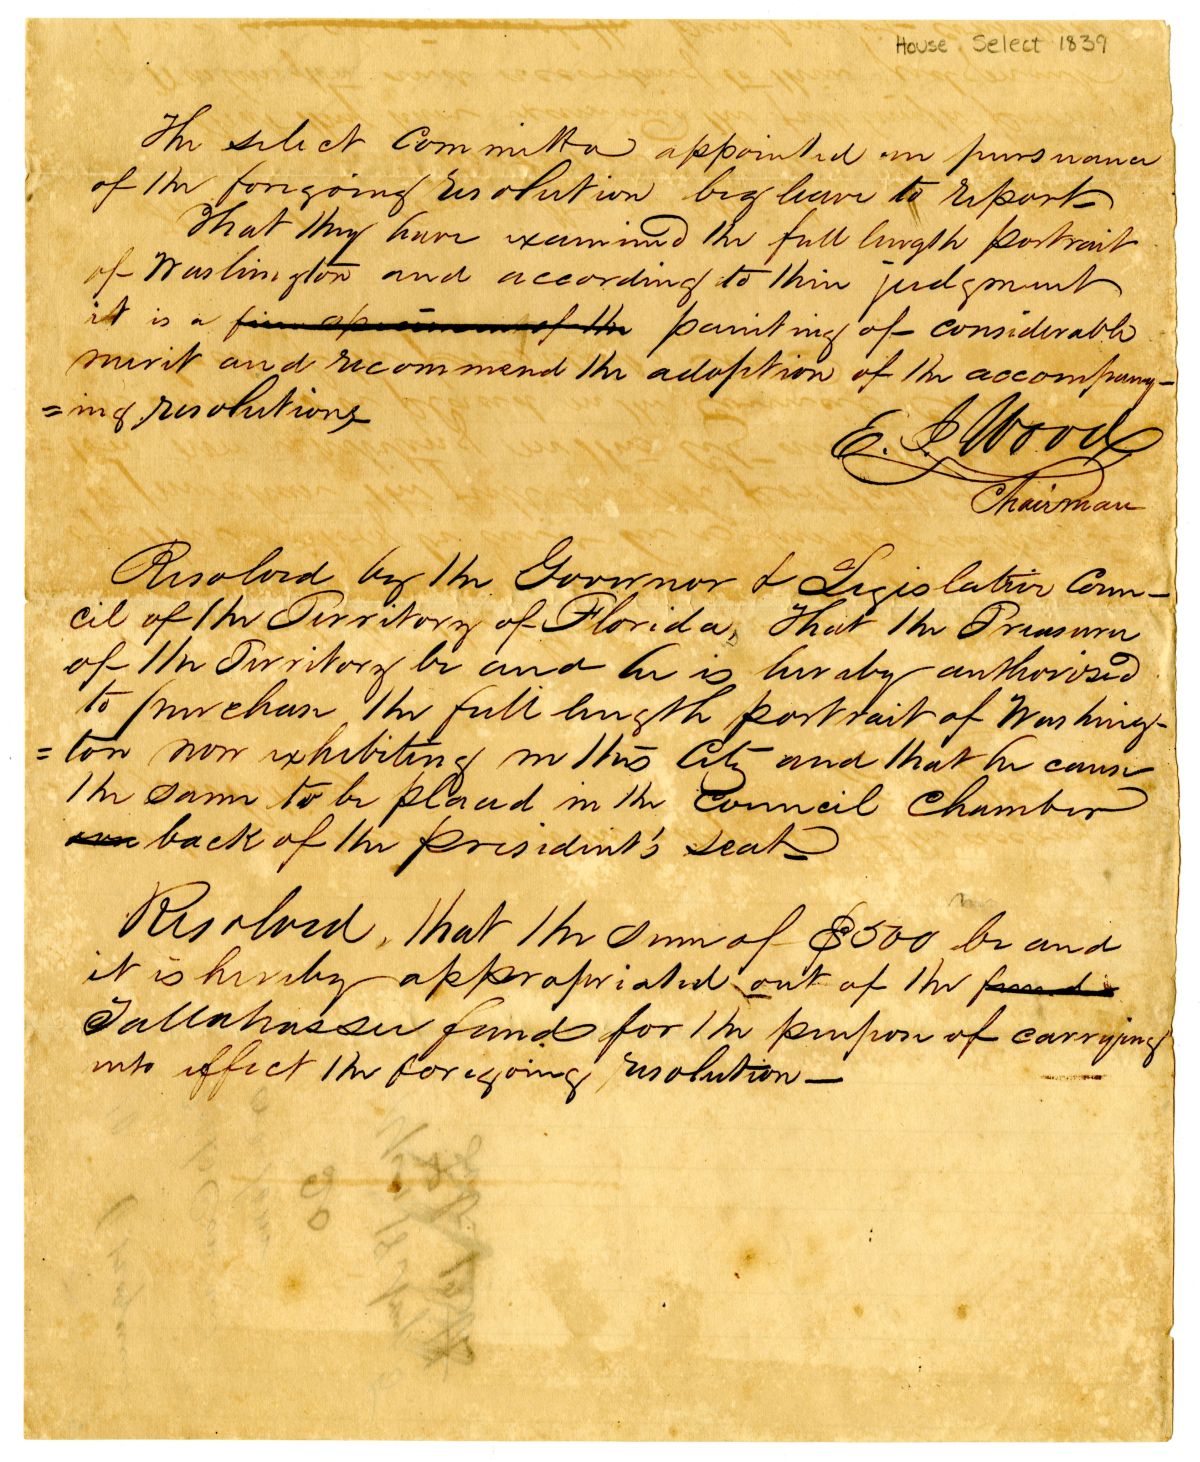 House Select 1839
The select Committee appointed in pursuance
of the foregoing resolution beg leave to report
That they have examined the full length portrait
of Washington and according to their judgment
it is a fine specimen of the painting of considerable
merit and recommend the adoption of the accompany-
=ing resolutions
E. J. Wood
Chairman
Resolved by the Governor & Legislative Coun-
cil of the Territory of Florida, That the Treasurer
of the Territory be and he is hereby authorised
to purchase the full length portrait of Washing-
=ton now exhibiting in this City and that he cause
the same to be placed in the Council Chamber
over back of the president's seat
Resolved, that the sum of $500 be and
it is hereby appropriated out of the funds
Tallahassee funds for the purpose of carrying
into effect the foregoing resolution